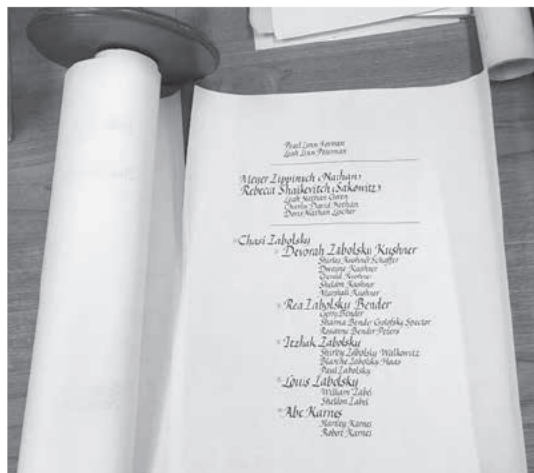 Pearl Linn
Leah Linn Peterman
Meyer Zippinuch (Nathan)
Rebecca Shaikevitch (Sakowitz)
Leah Nathan Goren
Charles David Nathan
Doris Nathan Lascher
Chasi Zabolsky
Devorah Zabolsky Kushner
Shirley Kushner Schaffer
Dwayne Kushner
Gerald Kushner
Sheldon Kushner
Marshall Kushner
Rea Zabolsky Bender
Gerry Bender
Sharna Bender Golofsky Spector
Rosanne Bender Peters
Itzhak Zabolsky
Shirley Zabolsky Walkowitz
Blanche Zabolsky Haas
Paul Zabolsky
Louis Zabolsky
William Zabel
Sheldon Zabel
Abe Karnes
Hartley Karnes
Robert Karnes